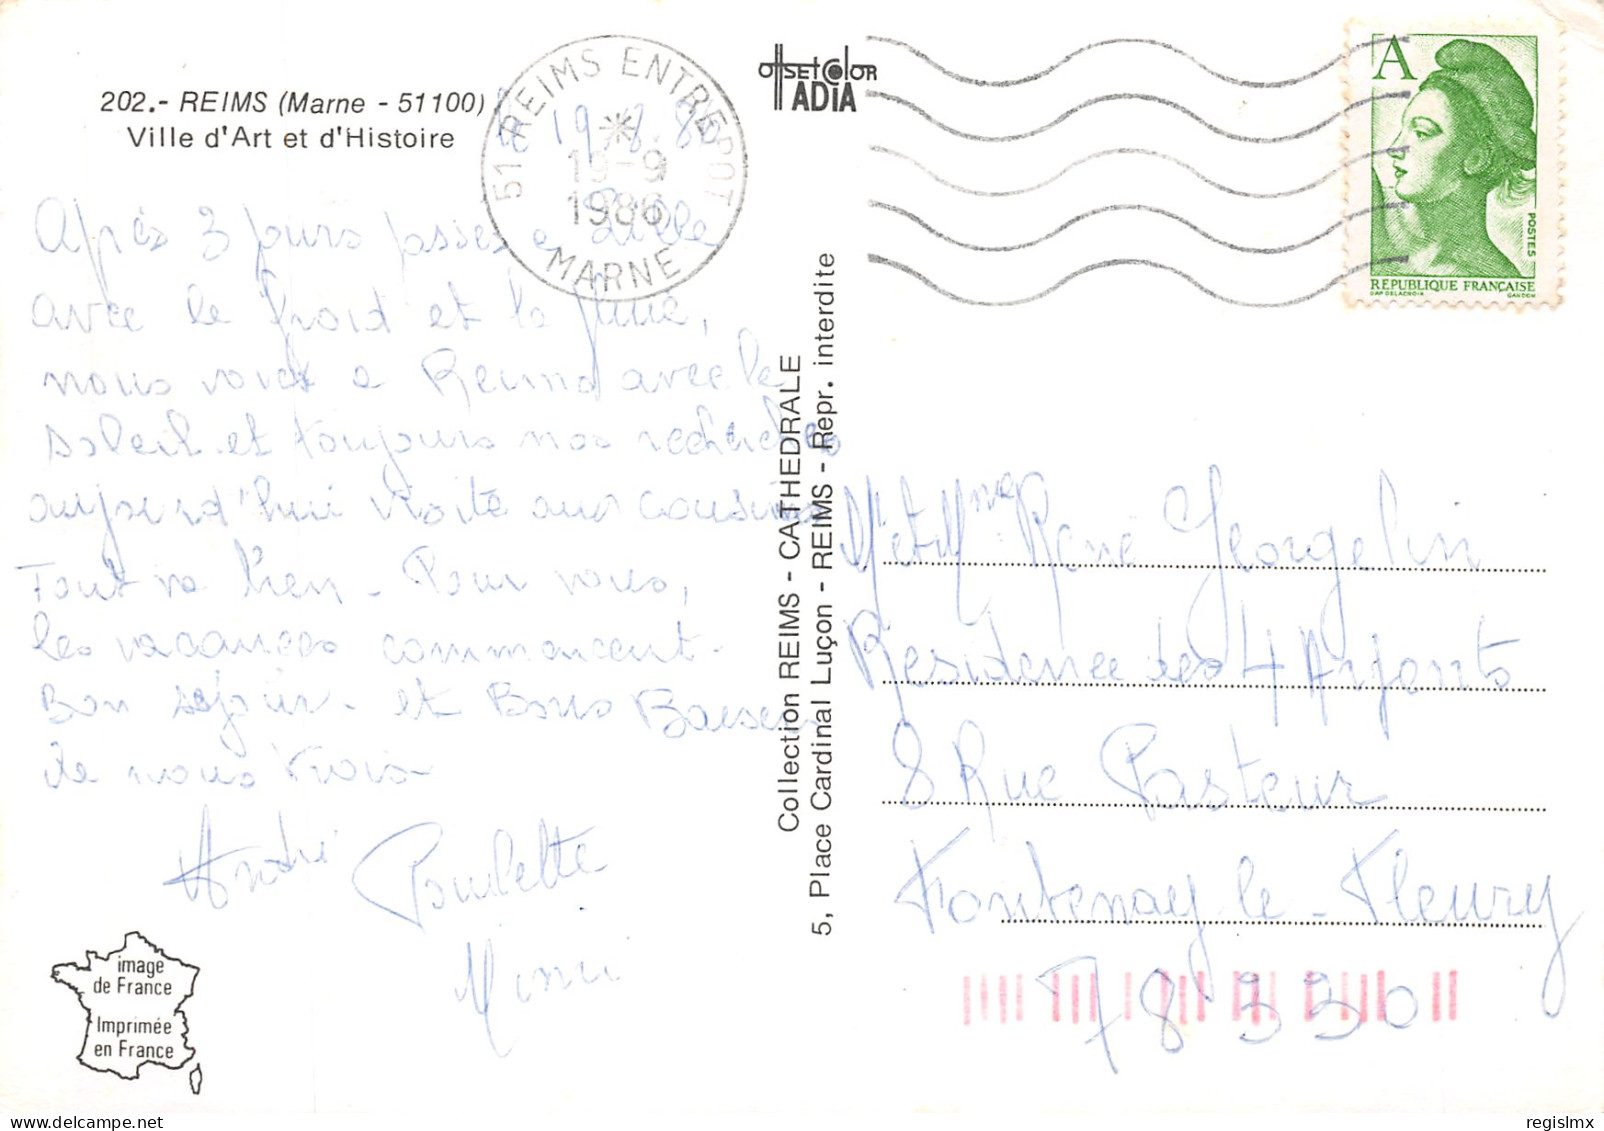 202.- REIMS (Marne - 51100)
Ville d'Art et d'Histoire
51 REIMS ENTREPOT
19-9
1986
MARNE
OffsetColor
ADIA
A
POSTES
REPUBLIQUE FRANÇAISE
DAP DELACROIX GANDON
le 19.8.86
Après 3 jours passés a Lille
avec le froid et la pluie,
nous voici a Reims avec le
soleil et toujours nos recherches
aujourd'hui visite aux cousins
Tout va bien - Pour vous,
les vacances commencent.
Bon séjour - et Bons Baisers
de nous trois
André Paulette
Mimi
Collection REIMS - CATHEDRALE
5, Place Cardinal Luçon - REIMS - Repr. interdite
M et Mme René Georgelin
Residence des 4 Arpents
8 Rue Pasteur
Fontenay le-Fleury
78330
image
de France
Imprimée
en France
regislmx